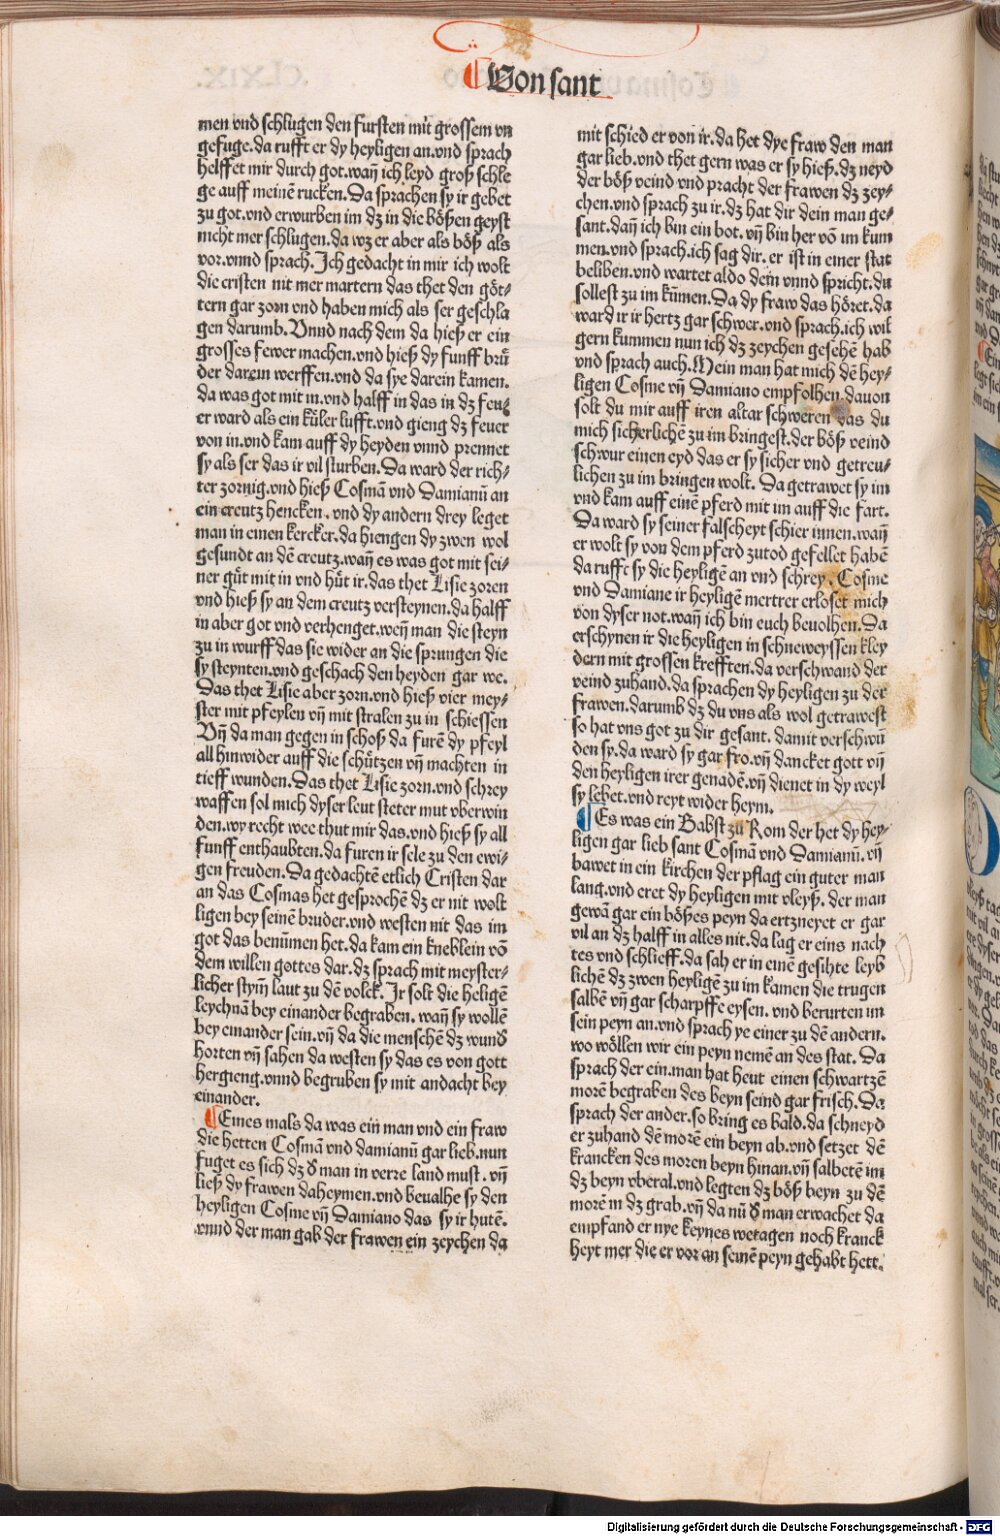 ¶ Von sant
men vnd schlugen den fursten mit grossem vn
gefuge.da rufft er dy heyligen an.vnd sprach
helffet mir durch got.wañ ich leyd groß schle
ge auff meinē rucken.Da sprachen sy ir gebet
zu got.vnd erwurben im dz in die bößen geyst
nicht mer schlugen.da wz er aber als böß als
vor.vnnd sprach.Ich gedacht in mir ich wolt
die cristen nit mer martern das thet den göt-
tern gar zorn vnd haben mich als ser geschla
gen darumb.Vnnd nach dem da hieß er ein
grosses fewer machen.vnd hieß dy funff brů
der darein werffen.vnd da sye darein kamen.
da was got mit in.vnd halff in das in dz feu
er ward als ein kůler lufft.vnd gieng dz feuer
von in.vnd kam auff dy heyden vnnd prennet
sy als ser das ir vil sturben.Da ward der rich-
ter zornig.vnd hieß Cosmā vnd Damianū an
ein creutz hencken.vnd dy andern drey leget
man in einen kercker.da hiengen dy zwen wol
gesundt an dē creutz.wañ es was got mit sei-
ner gůt mit in vnd hůt ir.das thet Lisie zoren
vnd hieß sy an dem creutz versteynen.da halff
in aber got vnd verhenget.weñ man die steyn
zu in wurff das sie wider an die sprungen die
sy steynten.vnd geschach den heyden gar we.
Das thet Lisie aber zorn.vnd hieß vier mey-
ster mit pfeylen vñ mit stralen zu in schiessen
Vñ da man gegen in schoß da furē dy pfeyl
all hinwider auff die schützen vñ machten in
tieff wunden.Das thet Lisie zorn.vnd schrey
waffen sol mich dyser leut steter mut vberwin
den.wy recht wee thut mir das.vnd hieß sy all
funff enthaubten.da furen ir sele zu den ewi-
gen freuden.Da gedachtē etlich Cristen dar
an das Cosmas het gesprochē dz er nit wolt
ligen bey seinē bruder.vnd westen nit das im
got das benūmen het.da kam ein kneblein vō
dem willen gottes dar.dz sprach mit meyster-
licher stym̄ laut zu dē volck.Ir solt die heligē
leychnā bey einander begraben.wañ sy wollē
bey einander sein.vñ da die menschē dz wund̄
horten vñ sahen da westen sy das es von gott
hergieng.vnnd begruben sy mit andacht bey
einander.
¶ Eines mals da was ein man vnd ein fraw
die hetten Cosmā vnd damianū gar lieb.nun
fuget es sich dz d̄ man in verre land must.vñ
ließ dy frawen daheymen.vnd beualhe sy den
heyligen Cosme vñ Damiano das sy ir hutē.
vnnd der man gab der frawen ein zeychen da
mit schied er von ir.da het dye fraw den man
gar lieb.vnd thet gern was er sy hieß.dz neyd
der böß veind vnd pracht der frawen dz zey-
chen.vnd sprach zu ir.dz hat dir dein man ge-
sant.dañ ich bin ein bot.vñ bin her vō im kum
men.vnd sprach.ich sag dir.er ist in einer stat
beliben.vnd wartet aldo dein vnnd spricht.du
sollest zu im kūmen.Da dy fraw das höret.da
ward ir ir hertz gar schwer.vnd sprach.ich wil
gern kummen nun ich dz zeychen gesehē hab
vnd sprach auch.Mein man hat mich dē hey-
ligen Cosme vñ Damiano empfolhen.dauon
solt du mir auff iren altar schweren das du
mich sicherlichē zu im bringest.der böß veind
schwur einen eyd das er sy sicher vnd getreu-
lichen zu im bringen wolt. Da getrawet sy im
vnd kam auff einē pferd mit im auff die fart.
Da ward sy seiner falscheyt schier innen.wañ
er wolt sy von dem pferd zutod gefellet habē
da ruffe sy die heyligē an vnd schrey.Cosme
vnd Damiane ir heyligē mertrer erloset mich
von dyser not.wañ ich bin euch beuolhen.Da
erschynen ir die heyligen in schneweyssen kley
dern mit grossen krefften.da verschwand der
veind zuhand.da sprachen dy heyligen zu der
frawen.darumb dz du vns als wol getrawest
so hat vns got zu dir gesant. damit verschwū
den sy.da ward sy gar fro.vñ dancket gott vñ
den heyligen irer genadē.vñ dienet in dy weyl
sy lebet.vnd reyt wider heym.
¶ Es was ein Babst zů Rom der het dy hey-
ligen gar lieb sant Cosmā vnd Damianū.vñ
bawet in ein kirchen der pflag ein guter man
lang.vnd eret dy heyligen mit vleyß. der man
gewā gar ein bößes peyn da ertzneyet er gar
vil an dz halff in alles nit.da lag er eins nach
tes vnd schlieff.da sah er in einē gesihte leyb
lichē dz zwen heyligē zu im kamen die trugen
salbē vñ gar scharpffe eysen. vnd berurten im
sein peyn an.vnd sprach ye einer zu dē andern.
wo wöllen wir ein peyn nemē an des stat. Da
sprach der ein.man hat heut einen schwartzē
morē begraben des beyn seind gar frisch.Da
sprach der ander.so bring es bald.da schneyd
er zuhand dē morē ein beyn ab.vnd setzet dē
krancken des moren beyn hinan.vñ salbetē im
dz beyn vberal.vnd legten dz böß beyn zu dē
morē in dz grab.vñ da nū d̄ man erwachet da
empfand er nye keynes wetagen noch kranck
heyt mer die er vor an seinē peyn gehabt hett.
Digitalisierung gefördert durch die Deutsche Forschungsgemeinschaft - DFG